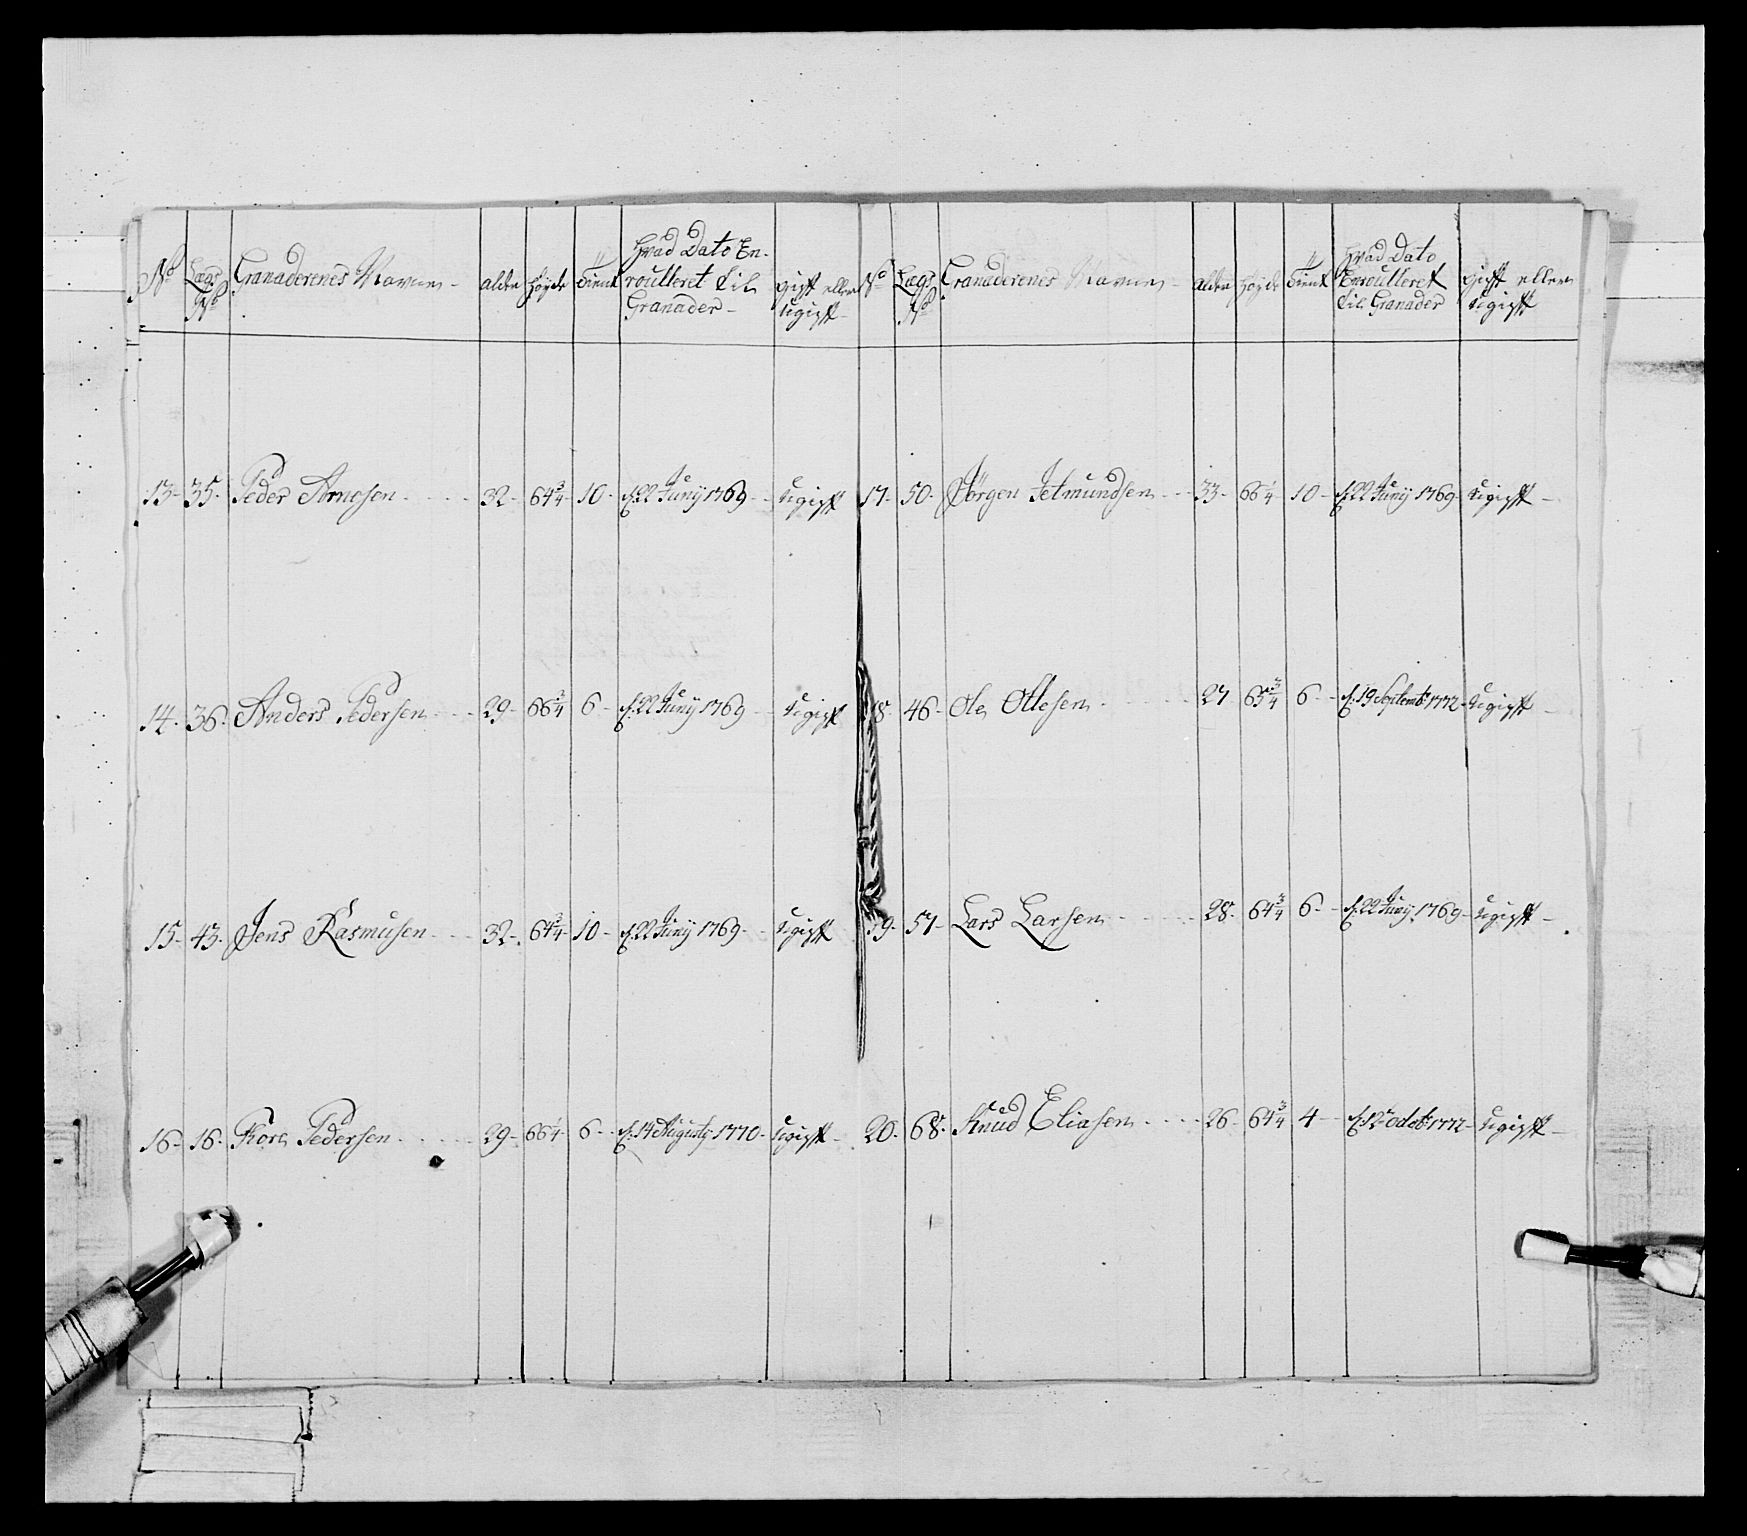 No Lægs No Granaderenes Navne - alder Høyde Tient Hvad Dato Enroulleret til Granader - gift eller ugift -
13- 35. Peder Arnesen - 32- 64 3/4 10- d. 22 Juny 1769 - ugift
14. 36. Anders Pedersen - 29- 66 3/4 6- d. 22 Juny 1769 - ugift
15- 43. Jens Rasmusen - 32- 64 3/4 10- d. 22 Juny 1769- ugift
16- 16. Tore Pedersen - 29- 66 1/4 6- d. 14 Augusty 1770- ugift -
No Lægs No Granaderenes Navne - alder Høyde Tient Hvad Dato Enroulleret til Granader gift eller ugift
17- 50. Jørgen Jetmundsen - 33- 66 1/4 10- d. 22 Juny 1769 ugift -
18. 46- Ole Ottesen - 27 65 3/4 6- d. 19 Septemb: 1772- ugift -
19. 57- Lars Larsen - 28. 64 3/4 6- d. 22 Juny 1769- ugift -
20. 68. Knud Eliasen - 26- 64 3/4 4- d. 12 octob: 1772- ugift -